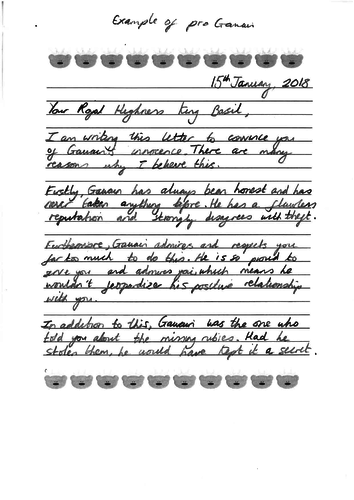 Example of pro Gawain
15th January, 2018
Your Royal Highness King Basil,
I am writing this letter to convince you
of Gawain's innocence. There are many
reasons why I believe this.
Firstly, Gawain has always been honest and has
never taken anything before. He has a flawless
reputation and strongly disagrees with theft.
Furthermore, Gawain admires and respects you
far too much to do this. He is so proud to
serve you and admires you which means he
wouldn't jeopardize his positive relationship
with you.
In addition to this, Gawain was the one who
told you about the missing rubies. Had he
stolen them, he would have kept it a secret.